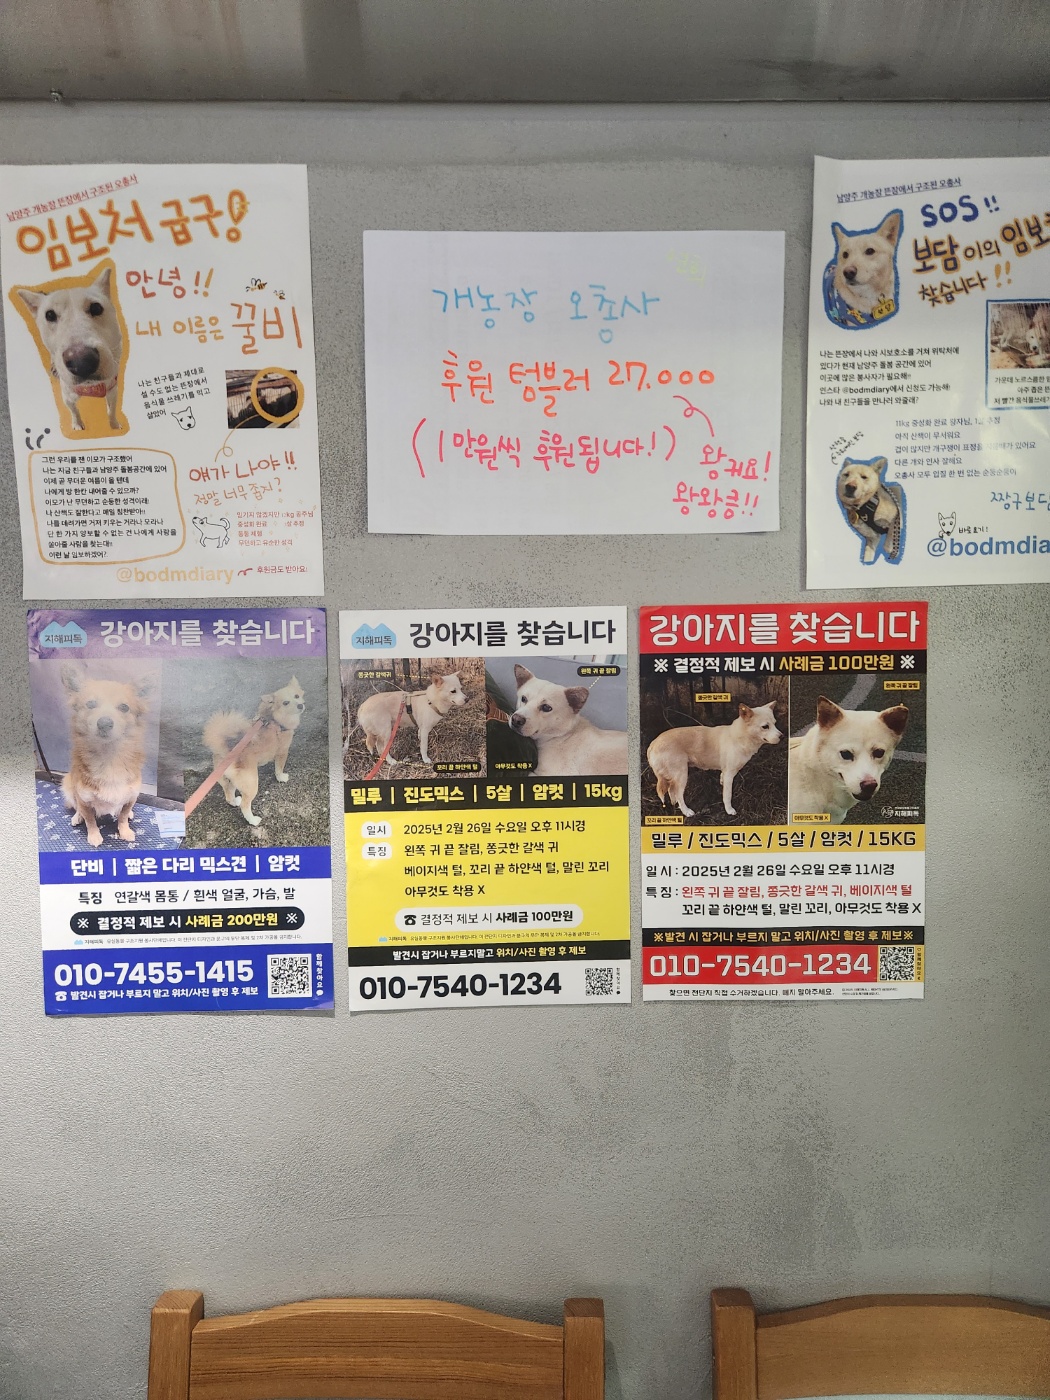 남양주 개농장 뜬장에서 구조된 오총사
임보처 급구!
안녕!!
내 이름은 꿀비
나는 친구들과 제대로
설 수도 없는 뜬장에서
음식물 쓰레기를 먹고
살았어
그런 우리를 팬 이모가 구조했어
나는 지금 친구들과 남양주 돌봄공간에 있어
이제 곧 무더운 여름이 올 텐데
나에게 방 한칸 내어줄 수 있으까?
이모가 난 무던하고 순둥한 성격이래!
나 산책도 잘한다고 매일 칭찬받아!!
나를 데려가면 거저 키우는 거라나 모라나
단 한 가지 양보할 수 없는 건 나에게 사랑을
쏟아줄 사람을 찾는대!!
이런 날 임보하겠어?
얘가 나야!!
정말 너무 좁지?
믿기지 않겠지만
kg 공주님
중성화 완료
추정
무던하고 유순한 성격
@bodmdiary
후원금도 받아요!
개농장 오총사
후원 텀블러 27.000
(1만원씩 후원됩니다!)
왕귀요!
왕왕큼!!
남양주 개농장 뜬장에서 구조된 오총사
SOS!!
보담이의 임보
찾습니다!!
나는 뜬장에서 나와 시보호소를 거쳐 위탁처에
있다가 현재 남양주 돌봄 공간에 있어
이곳에 많은 봉사자가 필요해!!
인스타 @bodmdiary에서 신청도 가능해!
나와 내 친구들을 만나러 와줄래?
가운데 노르스름한
아주 좁은
저 빨간 음식물쓰레기
11kg 중성화 완료 왕자님, 1살 추정
아직 산책이 무서워요
겁이 많지만 개구쟁이 표정을
있어요
다른 개와 인사 잘해요
오총사 모두 입질 한 번 없는 순둥순둥이
짱구보담
바로보기!
@bodmdia
지해피독
강아지를 찾습니다
단비 | 짧은 다리 믹스견 | 암컷
특징 연갈색 몸통 / 흰색 얼굴, 가슴, 발
※ 결정적 제보 시 사례금 200만원 ※
010-7455-1415
☎ 발견시 잡거나 부르지 말고 위치/사진 촬영 후 제보
함께찾아요
지해피독
강아지를 찾습니다
쫑긋한 갈색귀
왼쪽 귀 끝 잘림
꼬리 끝 하얀색 털
아무것도 착용 X
밀루 | 진도믹스 | 5살 | 암컷 | 15kg
일시 2025년 2월 26일 수요일 오후 11시경
특징 왼쪽 귀 끝 잘림, 쫑긋한 갈색 귀
베이지색 털, 꼬리 끝 하얀색 털, 말린 꼬리
아무것도 착용 X
☎ 결정적 제보 시 사례금 100만원
발견시 잡거나 부르지말고 위치/사진 촬영 후 제보
010-7540-1234
강아지를 찾습니다
※ 결정적 제보 시 사례금 100만원 ※
쫑긋한 갈색 귀
왼쪽 귀 끝 잘림
꼬리 끝 하얀색 털
아무것도 착용 X
지해피독
밀루 / 진도믹스 / 5살 / 암컷 / 15KG
일 시 : 2025년 2월 26일 수요일 오후 11시경
특 징 : 왼쪽 귀 끝 잘림, 쫑긋한 갈색 귀, 베이지색 털
꼬리 끝 하얀색 털, 말린 꼬리, 아무것도 착용 X
※발견 시 잡거나 부르지 말고 위치/사진 촬영 후 제보※
010-7540-1234
찾으면 전단지 직접 수거하겠습니다. 떼지 말아주세요.